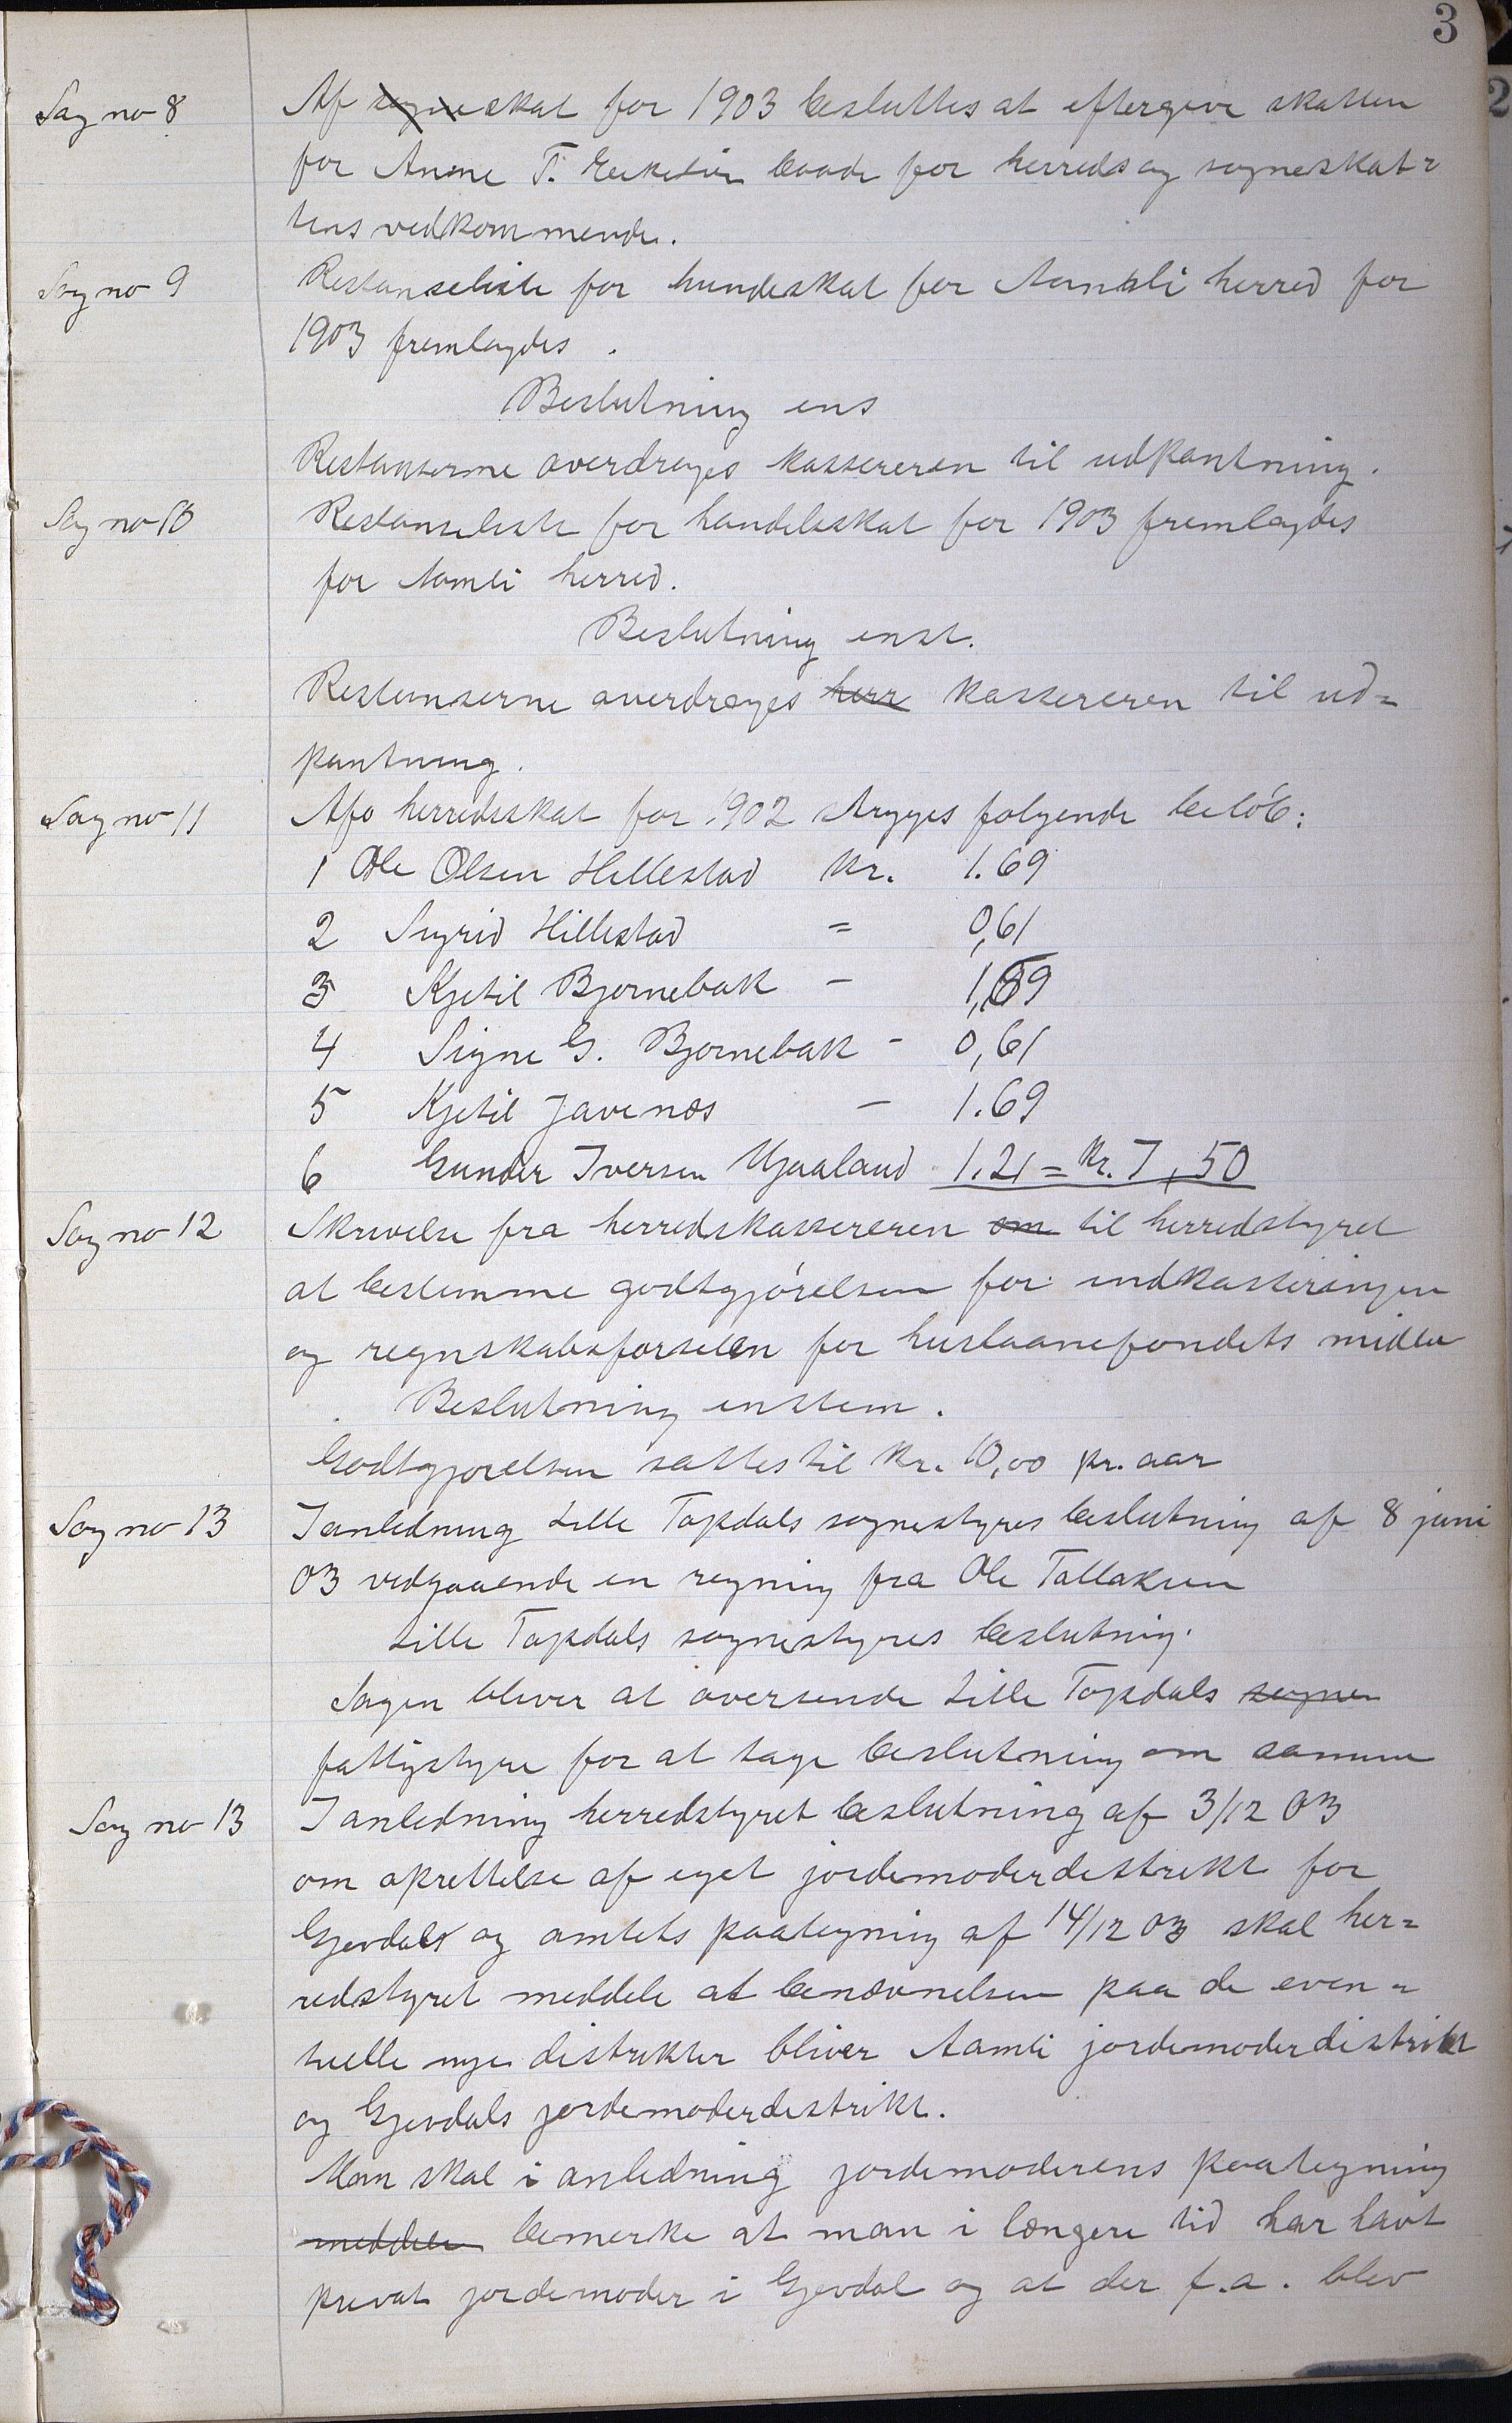 3
Sag no 8 Af sogneskat for 1903 besluttes at eftergive skatten
for Anne T. baade for herreds og sogneskat=
tens vedkommende.
Sag no 9 Restanseliste for hundeskat for Aamli herred for
1903 fremlagdes.
Beslutning ens
Restanserne overdrages kassereren til udpantning.
Sag no 10 Restanseliste for handelsskat for 1903 fremlagdes
for Aamli herred.
Beslutning enst.
Restanserne overdrages herr kassereren til ud=
pantning.
Sag no 11 Af herredsskat for 1902 stryges følgende beløb:
1 Ole Olsen Hillestad kr. 1.69
2 Sigrid Hillestad = 0,61
3 Kjetil Bjornebak - 1,69
4 Signe G. Bjornebak - 0,61
5 Kjetil Javenæs - 1.69
6 Gunder Iversen Ujaaland 1.21 = Kr. 7,50
Sag no 12 Skrivelse fra herredskassereren om til herredstyret
at bestemme godtgjørelsen for indkasseringen
og regnskabsførselen for huslaanefondets midler
Beslutning enstem.
Godtgjorelsen sættes til Kr. 10,00 pr. aar
Sag no 13 I anledning Lille Topdals sognestyres beslutning af 8 juni
03 vedgaaende en regning fra Ole Tallaksen
Lille Topdals sognestyres beslutning.
Sagen bliver at oversende Lille Topdals sogne
fattigstyre for at tage beslutning om samme
Sag no 13 I anledning herredstyret beslutning af 3/12 03
om oprettelse af eget jordemoderdistrikt for
Gjevdal og amtets paategning af 14/12 03 skal her=
redstyret meddele at benævnelsen paa de even=
tuelle nye distrikter bliver Aamli jordemoderdistrikt
og Gjevdals jordemoderdistrikt.
Man skal i anledning jordemoderens paategning
meddele bemerke at man i længere tid har havt
privat jordemoder i Gjevdal og at der f.a. blev